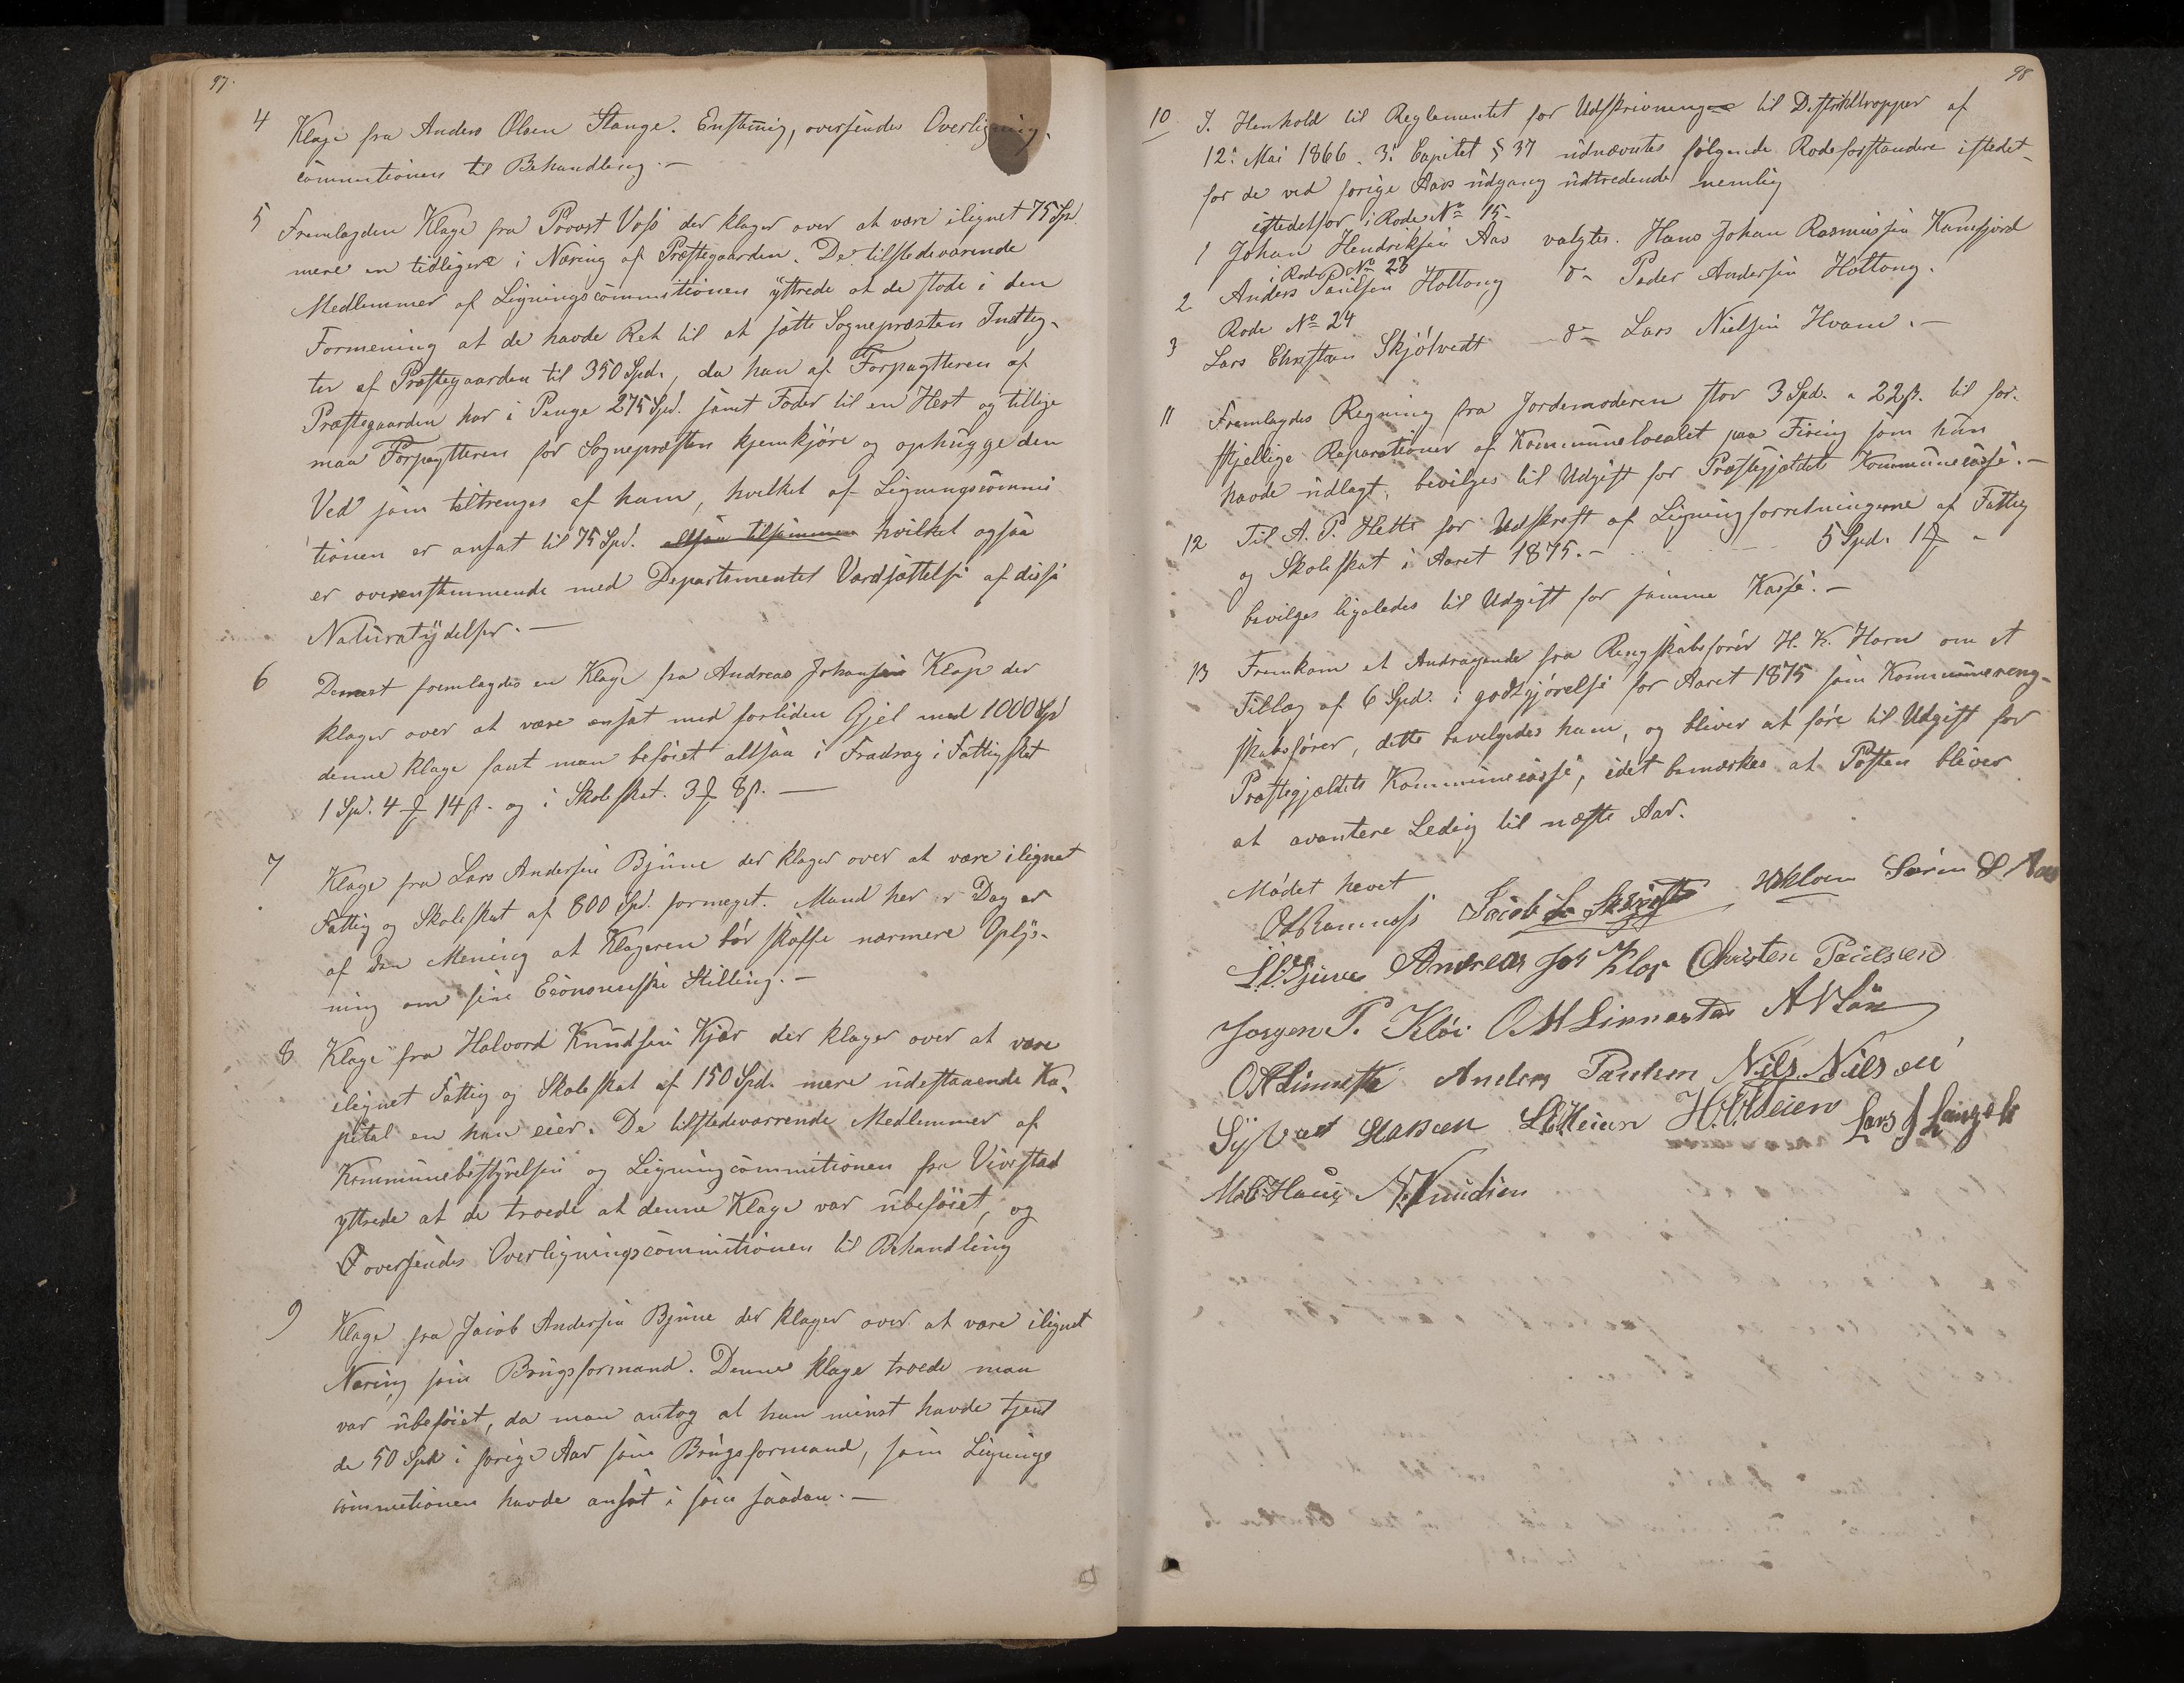 97.
4 Klage fra Anders Olsen Stange. Enstemig, oversendes Overligning-
commitionen til Behandling.—
5 Fremlagdes Klage fra Provst Voss der klager over at være ilignet 75 Spd
mere en tidligere i Næring af Præstegaarden. De tilstedeværende
Medlemmer af Ligningscommitionen yttrede at de stode i den
Formening at de havde Ret til at sætte Sognepræsten Indteg-
ter af Præstegaarden til 350 Spd., da han af Forpagteren af
Præstegaarden har i Penge 275 Spd. samt Foder til en Hest og tillige
maa Forpagteren for Sognepræsten hjemkjøre og ophugge den
Ved som tiltrenges af ham, hvilket af Ligningscommis
tionen er ansat til 75 Spd. altsaa tilsammen hvilket ogsaa
er overenstemmende med Departementet Værdsættelse af disse
Naturalydelser.—
6 Dernest fremlagdes en Klage fra Andreas Johansen Klop der
klager over at være ansat med forliden Gjel med 1000 Spd
denne klage fant man beføiet altsaa i Fradrag i Fattigskat
1 Spd. 4 ƒ 14 ß. og i Skoleskat. 3 ƒ 8 ß.—
7 Klage fra Lars Andersen Bjune der klager over at være ilignet
Fattig og Skoleskat af 800 Spd. formeget. Mand her i Dag er
af den Mening at Klageren bør skaffe nærmere Oplys-
ning om sin Economiske Stilling.—
8 Klage fra Halvord Knudsen Kjær der klager over at være
ilignet Fattig og Skoleskat af 150 Spd. mere udestaaende Ka-
pital en han eier. De tilstedeværrende Medlemmer af
Kommunebestyrelsen og Ligningcommitionen fra Vivestad
yttrede at de troede at denne Klage var ubeføiet, og
oversendes Overligningscommitionen til Behandling
9 Klage fra Jacob Andersen Bjune der klager over at være ilignet
Næring som Brugsformand. Denne klage troede man
var ubeføiet, da man antog at han minst havde tjent
de 50 Spd i forige Aar som Brugsformand, som Lignings
commitionen havde ansat i som saadan.—
98
10 I. Henhold til Reglementet for Udskrivninge til Distriktstropper af
12: Mai 1866. 3: Capitel § 37 udnævntes følgende Rodeforstandere istedet-
for de ved forige Aars udgang udtredende nemlig
istedetfor i Rode No 15.
1 Johan Hendriksen Aas valgtes. Hans Johan Rasmussen Kamfjord
i Rode No 23
2 Anders Paulsen Holtong do Peder Andersen Holtong.
Rode No 24
3 Lars Christian Skjølvedt do Lars Nielsen Hvam.—
11 Fremlagdes Regning fra Jordemoderen stor 3 Spd. " 22 ß. til for-
skjellige Reparationer af Kommunelocalet paa Firing som hun
havde udlagt, bevilges til Udgift for Præstegjældets Kommunecasse.—
12 Til A. P. Hette for Udskrift af Ligningsforretningerne af Fattig
og Skoleskat i Aaret 1875.— 5 Spd. 1 ƒ "
bevilges ligeledes til Udgift for samme Kasse.—
13 Fremkom et Andragende fra Rengskabsfører H. K. Horn om et
Tillæg af 6 Spd. i godtgjørelse for Aaret 1875 som Kommunereng-
skabsfører, dette bevilgedes ham, og bliver at føre til Udgift for
Præstegjældets Kommunecasse, idet bemærkes at Posten bliver
at avantere Ledig til næste Aar.
Mødet hævet
Jacob Søren Aas
Andreas Joh Klop Christen Paulsen
Jørgen P. Kløv O M Linnestad
Anders Paulsen Nils Nilsen
Hansen
N. Knudsen